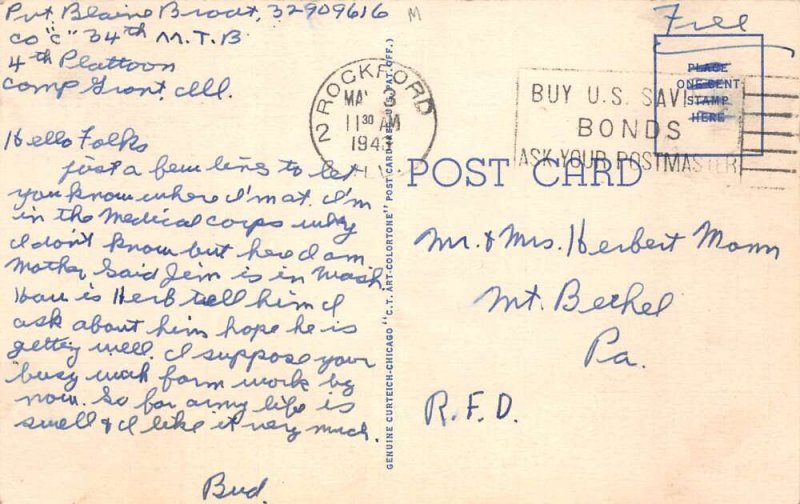 Pvt. Blaine Brodt, 32909616
M
Co "C" 34th M.T.B
4th Plattoon
Camp Grant, Ill.
Hello Folks
just a few lines to let
you know where I'm at. I'm
in the Medical Corps why
I don't know but here I am.
Mother said Jim is in Wash.
How is Herb tell him I
ask about him hope he is
getting well. I suppose your
busy with farm work by
now. So far army life is
swell & I like it very much.
Bud.
GENUINE CURTEICH-CHICAGO "C.T. ART-COLORTONE" POST CARD (REG. U.S. PAT. OFF.)
ROCKFORD
2
MA 3
11 30 AM
194
ILL.
BUY U.S. SAVI
BONDS
ASK YOUR POSTMASTER
Free
PLACE
ONE CENT
STAMP
HERE
POST CARD
Mr. & Mrs. Herbert Mann
Mt. Bethel
Pa.
R.F.D.